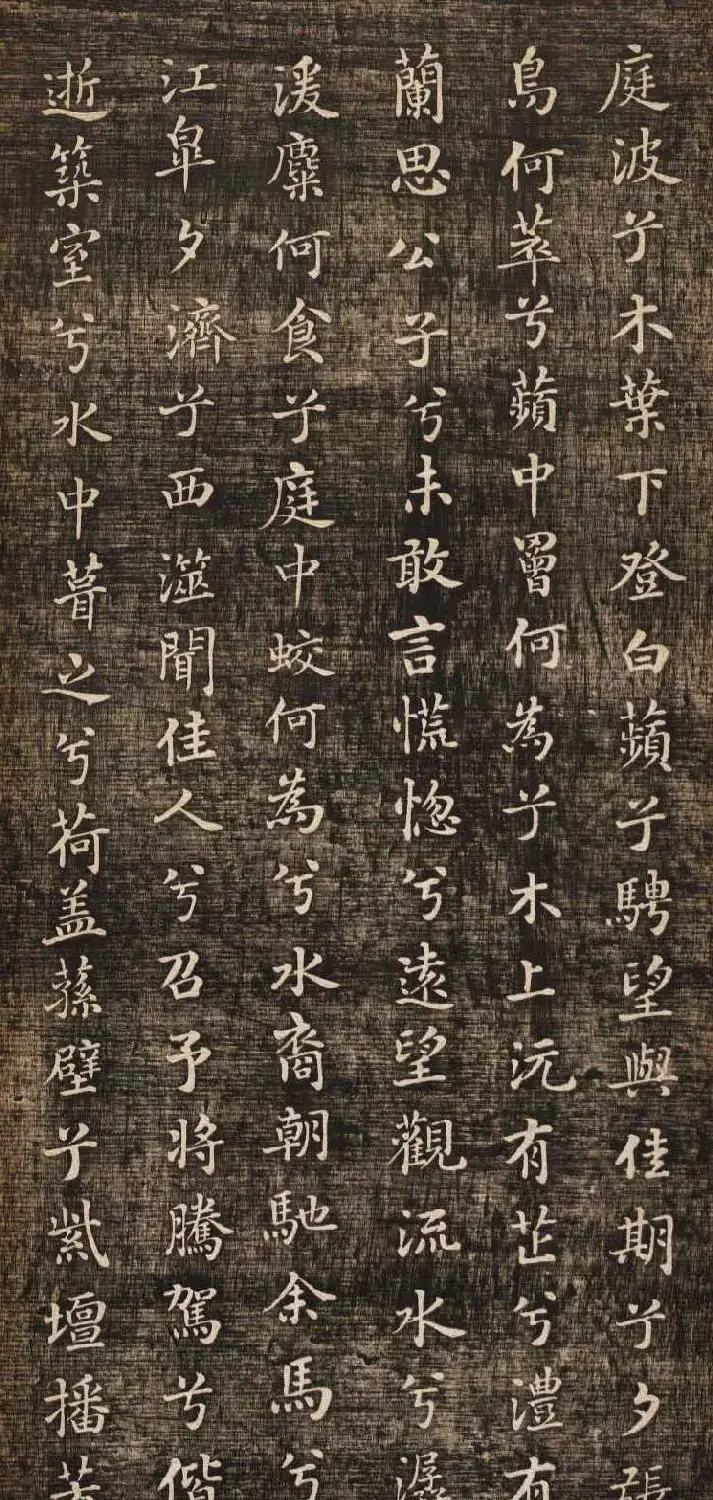 庭波兮木葉下登白蘋兮騁望與佳期兮夕張
鳥何萃兮蘋中罾何為兮木上沅有芷兮澧有
蘭思公子兮未敢言慌惚兮遠望觀流水兮潺
湲麋何食兮庭中蛟何為兮水裔朝馳余馬兮
江皐夕濟兮西澨聞佳人兮召予将騰駕兮偕
逝築室兮水中葺之兮荷盖蓀壁兮紫壇播芳